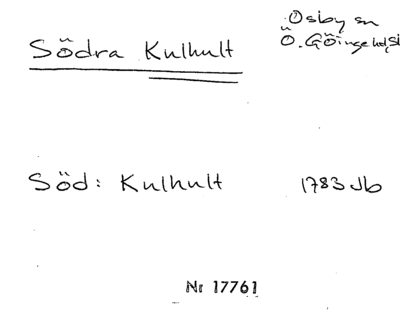 Osby sn
Södra Kulhult
Ö. Göinge hd, Sk
Söd: Kulhult 1783 Jb
Nr 17761